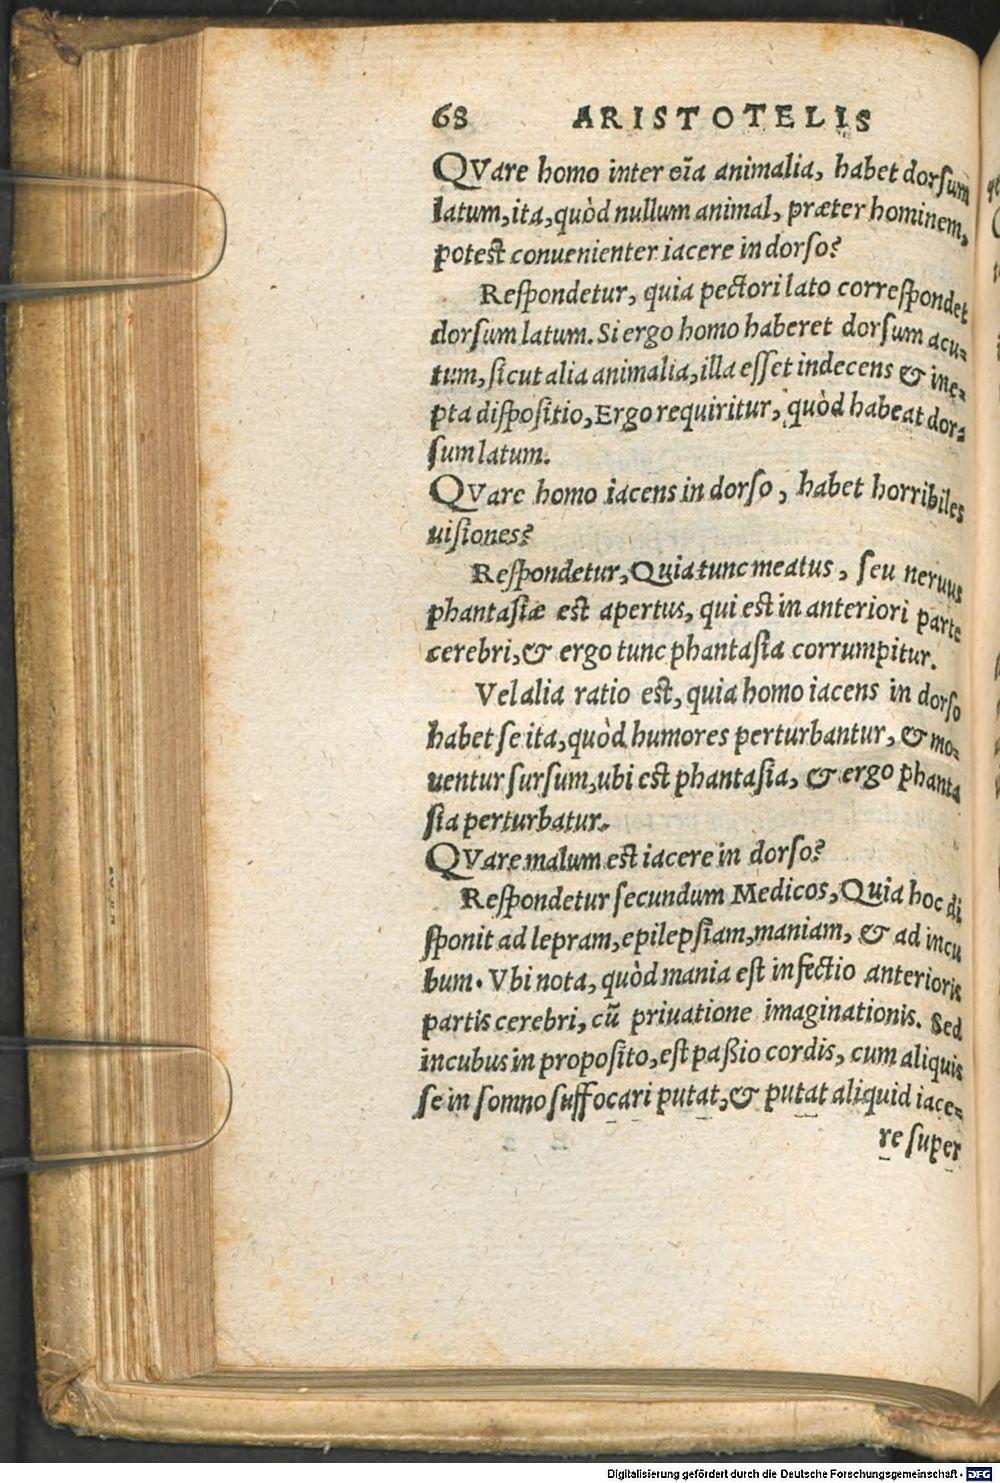 68 ARISTOTELIS
QVare homo inter oīa animalia, habet dorsum
latum, ita, quòd nullum animal, præter hominem,
potest conuenienter iacere in dorso?
Reſpondetur, quia pectori lato correſpondet
dorſum latum. Si ergo homo haberet dorſum acu-
tum, ſicut alia animalia, illa eſſet indecens & ine-
pta diſpoſitio, Ergo requiritur, quòd habeat dor-
ſum latum.
QVare homo iacens in dorſo, habet horribiles
uiſiones?
Reſpondetur, Quia tunc meatus, ſeu neruus
phantaſiæ est apertus, qui est in anteriori parte
cerebri, & ergo tunc phantaſia corrumpitur.
Vel alia ratio est, quia homo iacens in dorſo
habet ſe ita, quòd humores perturbantur, & mo-
uentur ſurſum, ubi est phantaſia, & ergo phanta
ſia perturbatur.
QVare malum est iacere in dorſo?
Reſpondetur ſecundum Medicos, Quia hoc di
ſponit ad lepram, epilepſiam, maniam, & ad incu
bum. Vbi nota, quòd mania eſt infectio anterioris
partis cerebri, cū priuatione imaginationis. Sed
incubus in propoſito, eſt paßio cordis, cum aliquis
ſe in ſomno ſuffocari putat, & putat aliquid iace-
re ſuper
Digitalisierung gefördert durch die Deutsche Forschungsgemeinschaft - DFG